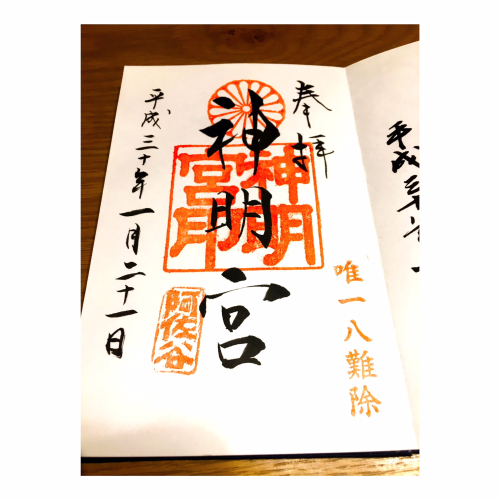 奉拝
神明宮
神明宮印
唯一八難除
阿佐谷
平成三十年一月二十一日
平成三十